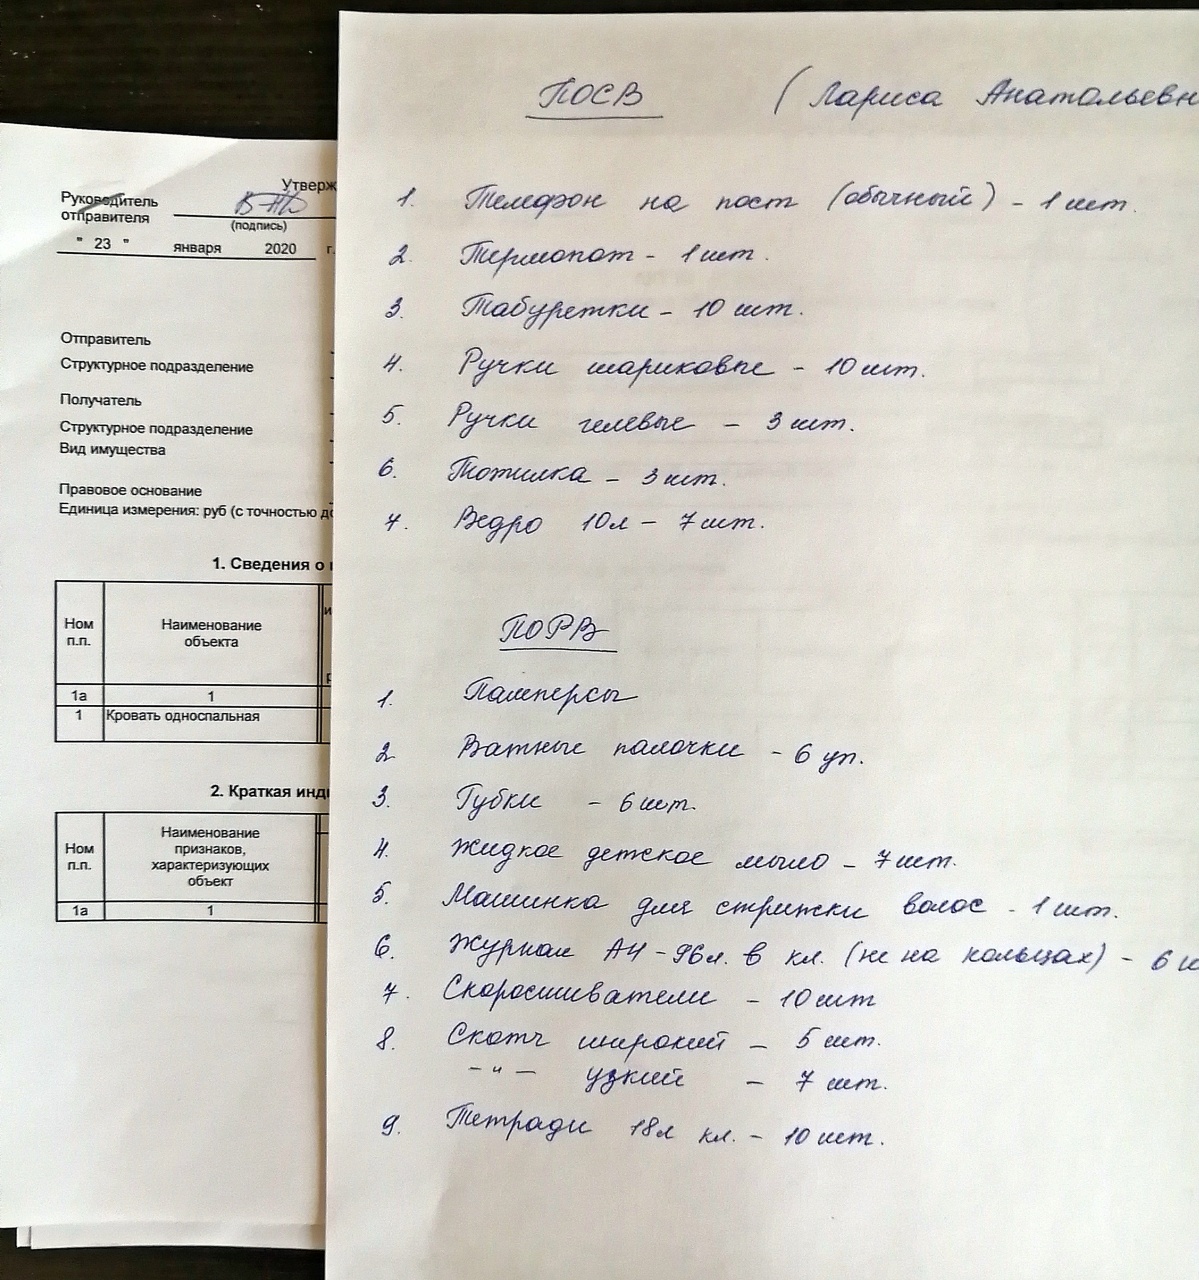 ПОСВ (Лариса Анатольевн
1. Телефон на пост (обычный) - 1 шт.
2. Термопот - 1 шт.
3. Табуретки - 10 шт.
4. Ручки шариковые - 10 шт.
5. Ручки гелевые - 3 шт.
6. Точилка - 3 шт.
7. Ведро 10л - 7 шт.
ПОРВ
1. Памперсы
2. Ватные палочки - 6 уп.
3. Губки - 6 шт.
4. Жидкое детское мыло - 7 шт.
5. Машинка для стрижки волос - 1 шт.
6. Журнал А4 - 96л. в кл. (не на кольцах) - 6 ш
7. Скоросшиватели - 10 шт
8. Скотч широкий - 5 шт.
-"- узкий - 7 шт.
9. Тетради 18л кл. - 10 шт.
Утверж
Руководитель
отправителя
(подпись)
" 23 " января 2020 г.
Отправитель
Структурное подразделение
Получатель
Структурное подразделение
Вид имущества
Правовое основание
Единица измерения: руб (с точностью до
1. Сведения о
Ном п.п. Наименование объекта
1а 1
1 Кровать односпальная
2. Краткая инди
Ном п.п. Наименование признаков, характеризующих объект
1а 1